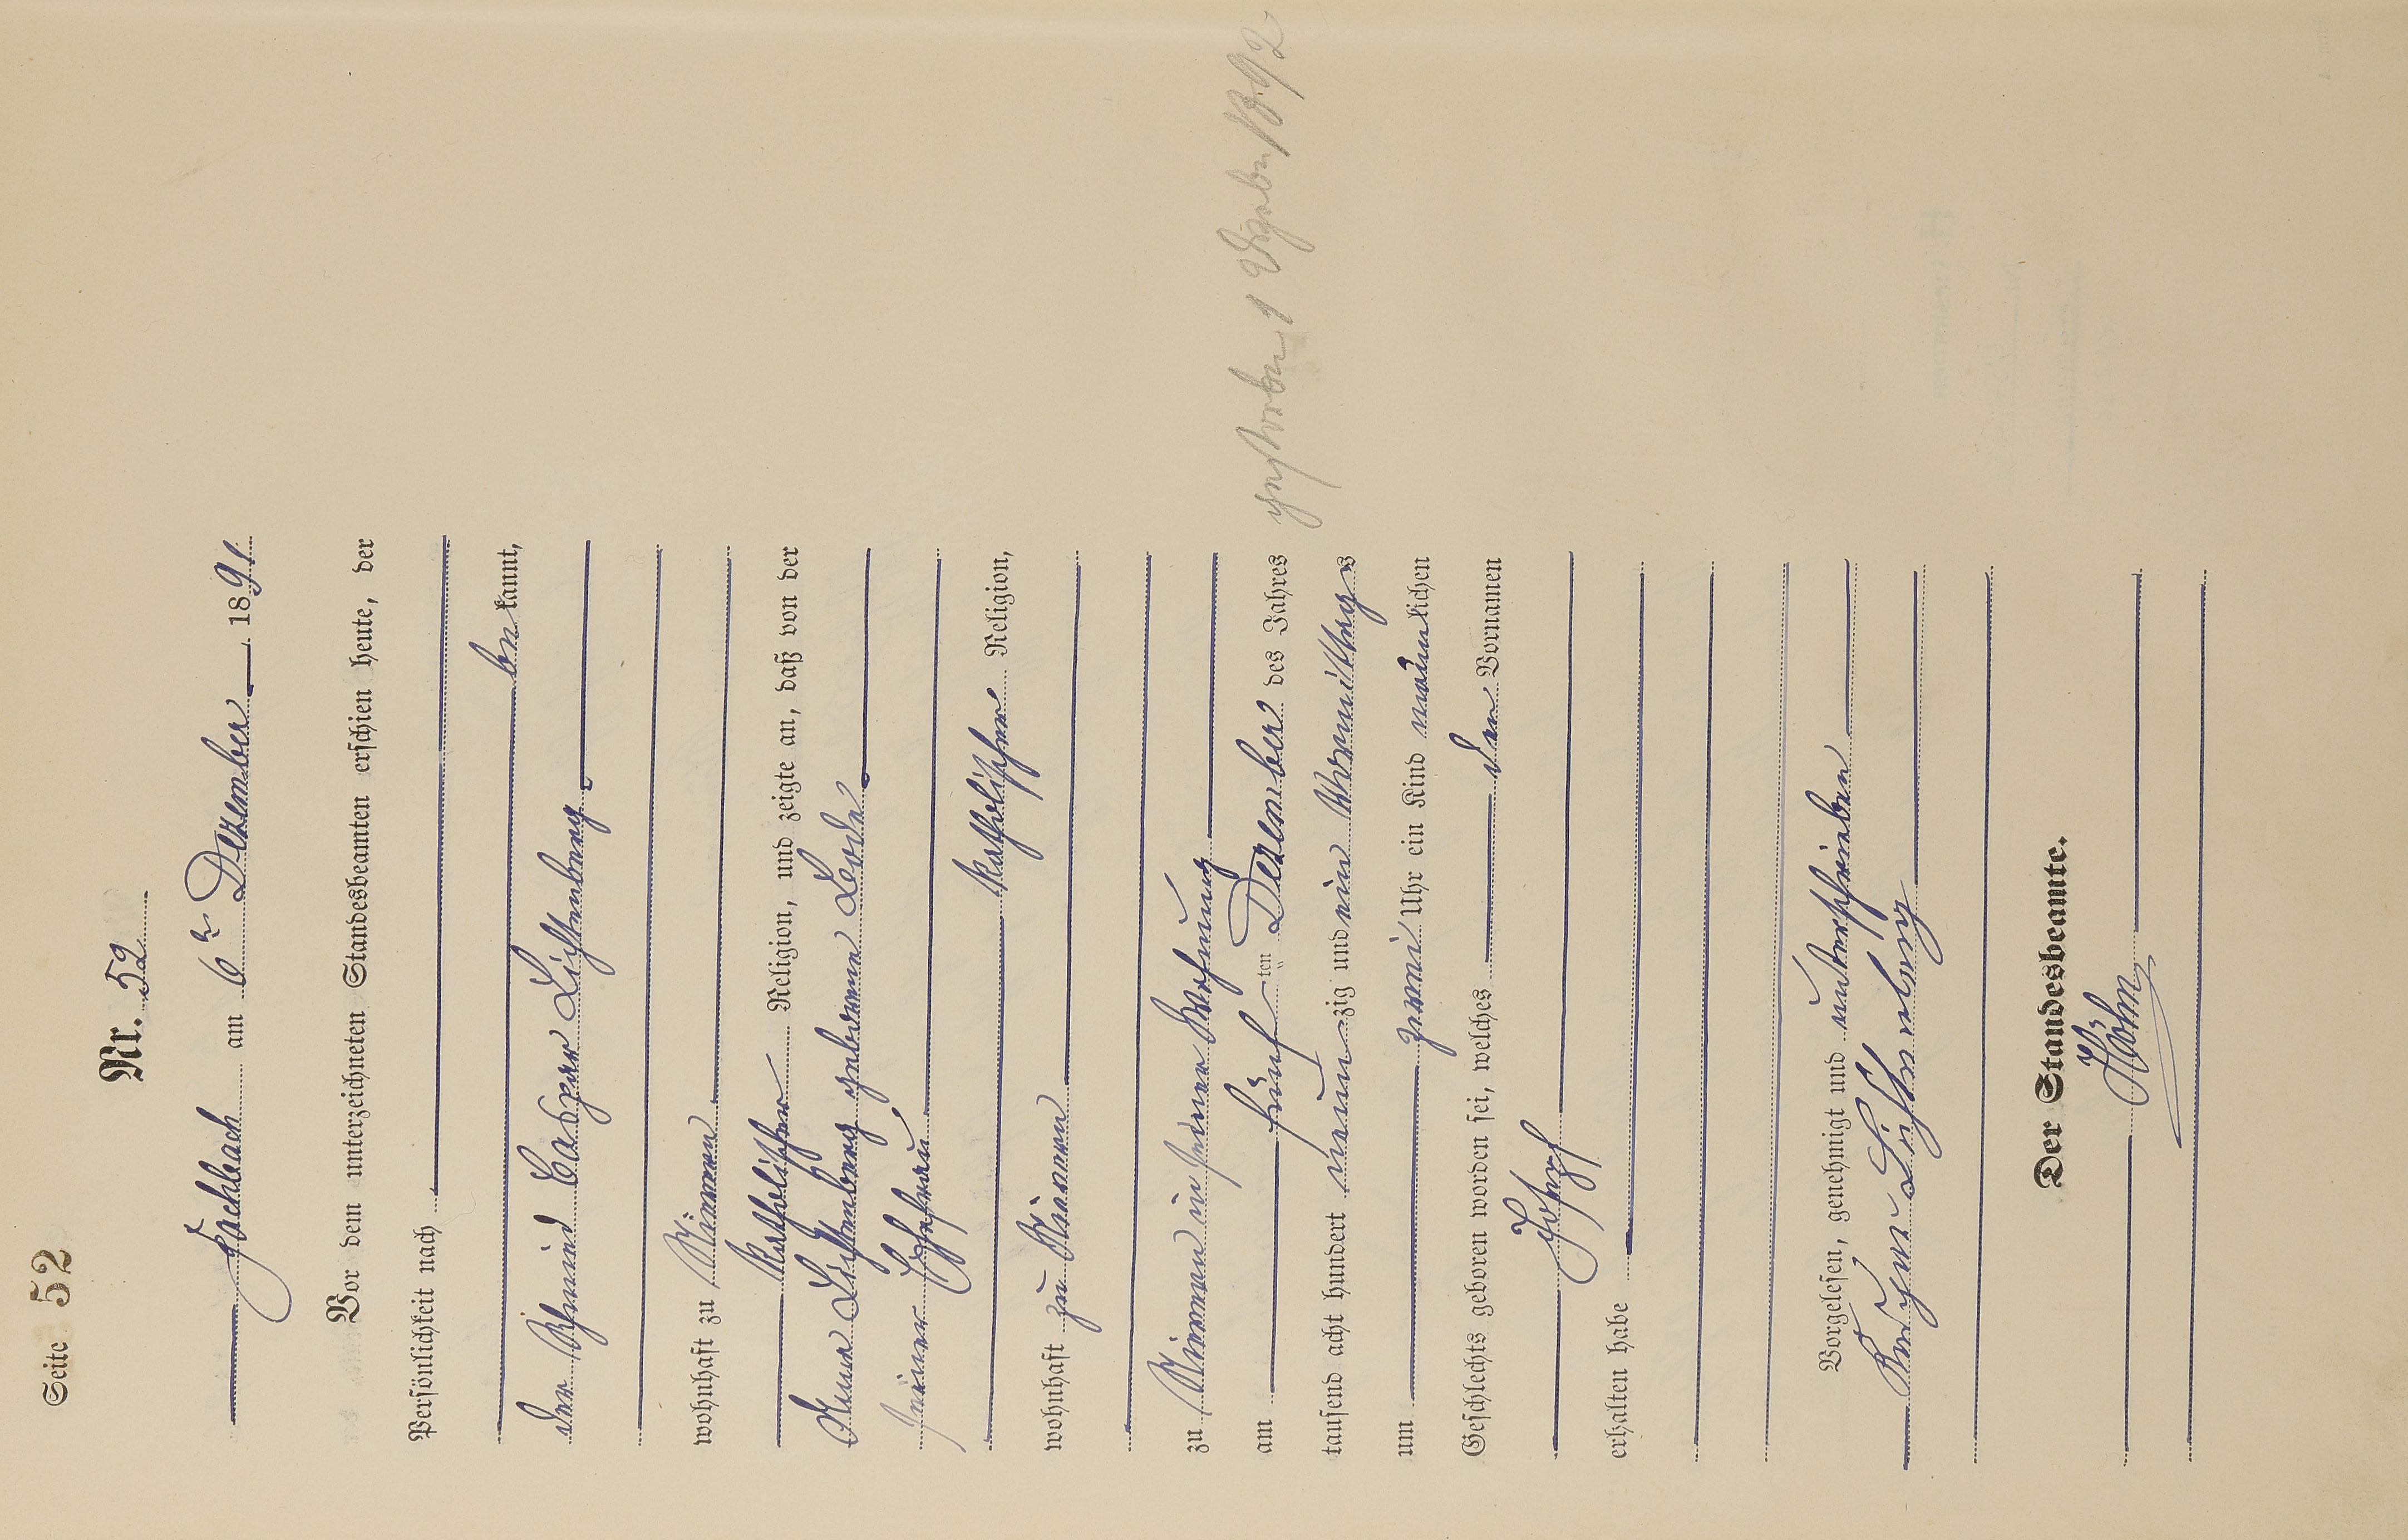 Seite 52
Nr. 52
Fachbach am 6ten Dezember 1891.
Vor dem unterzeichneten Standesbeamten erschien heute, der
Persönlichkeit nach
bekannt,
der Schmied Caspar Lichtenberg
wohnhaft zu Nievern
katholischer Religion, und zeigte an, daß von der
Anna Lichtenberg geborene
seiner Ehefrau
katholischer Religion,
wohnhaft zu Nievern
zu Nievern in seiner Wohnung
am fünf ten Dezember des Jahres
tausend acht hundert neunzig und ein Vormittags
um zwei Uhr ein Kind männlichen
Geschlechts geboren worden sei, welches den Vornamen
Josef
erhalten habe
Vorgelesen, genehmigt und unterschrieben
Lichtenberg
Der Standesbeamte.
gestorben 1892